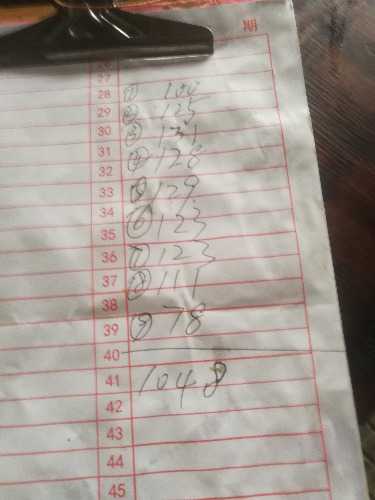 期
27
28 ① 100
29 ② 125
30 ③ 131
31 ④ 128
32
33 ⑤ 129
34 ⑥ 123
35
36 ⑦ 123
37 ⑧ 111
38
39 ⑨ 78
40
41 1048
42
43
44
45